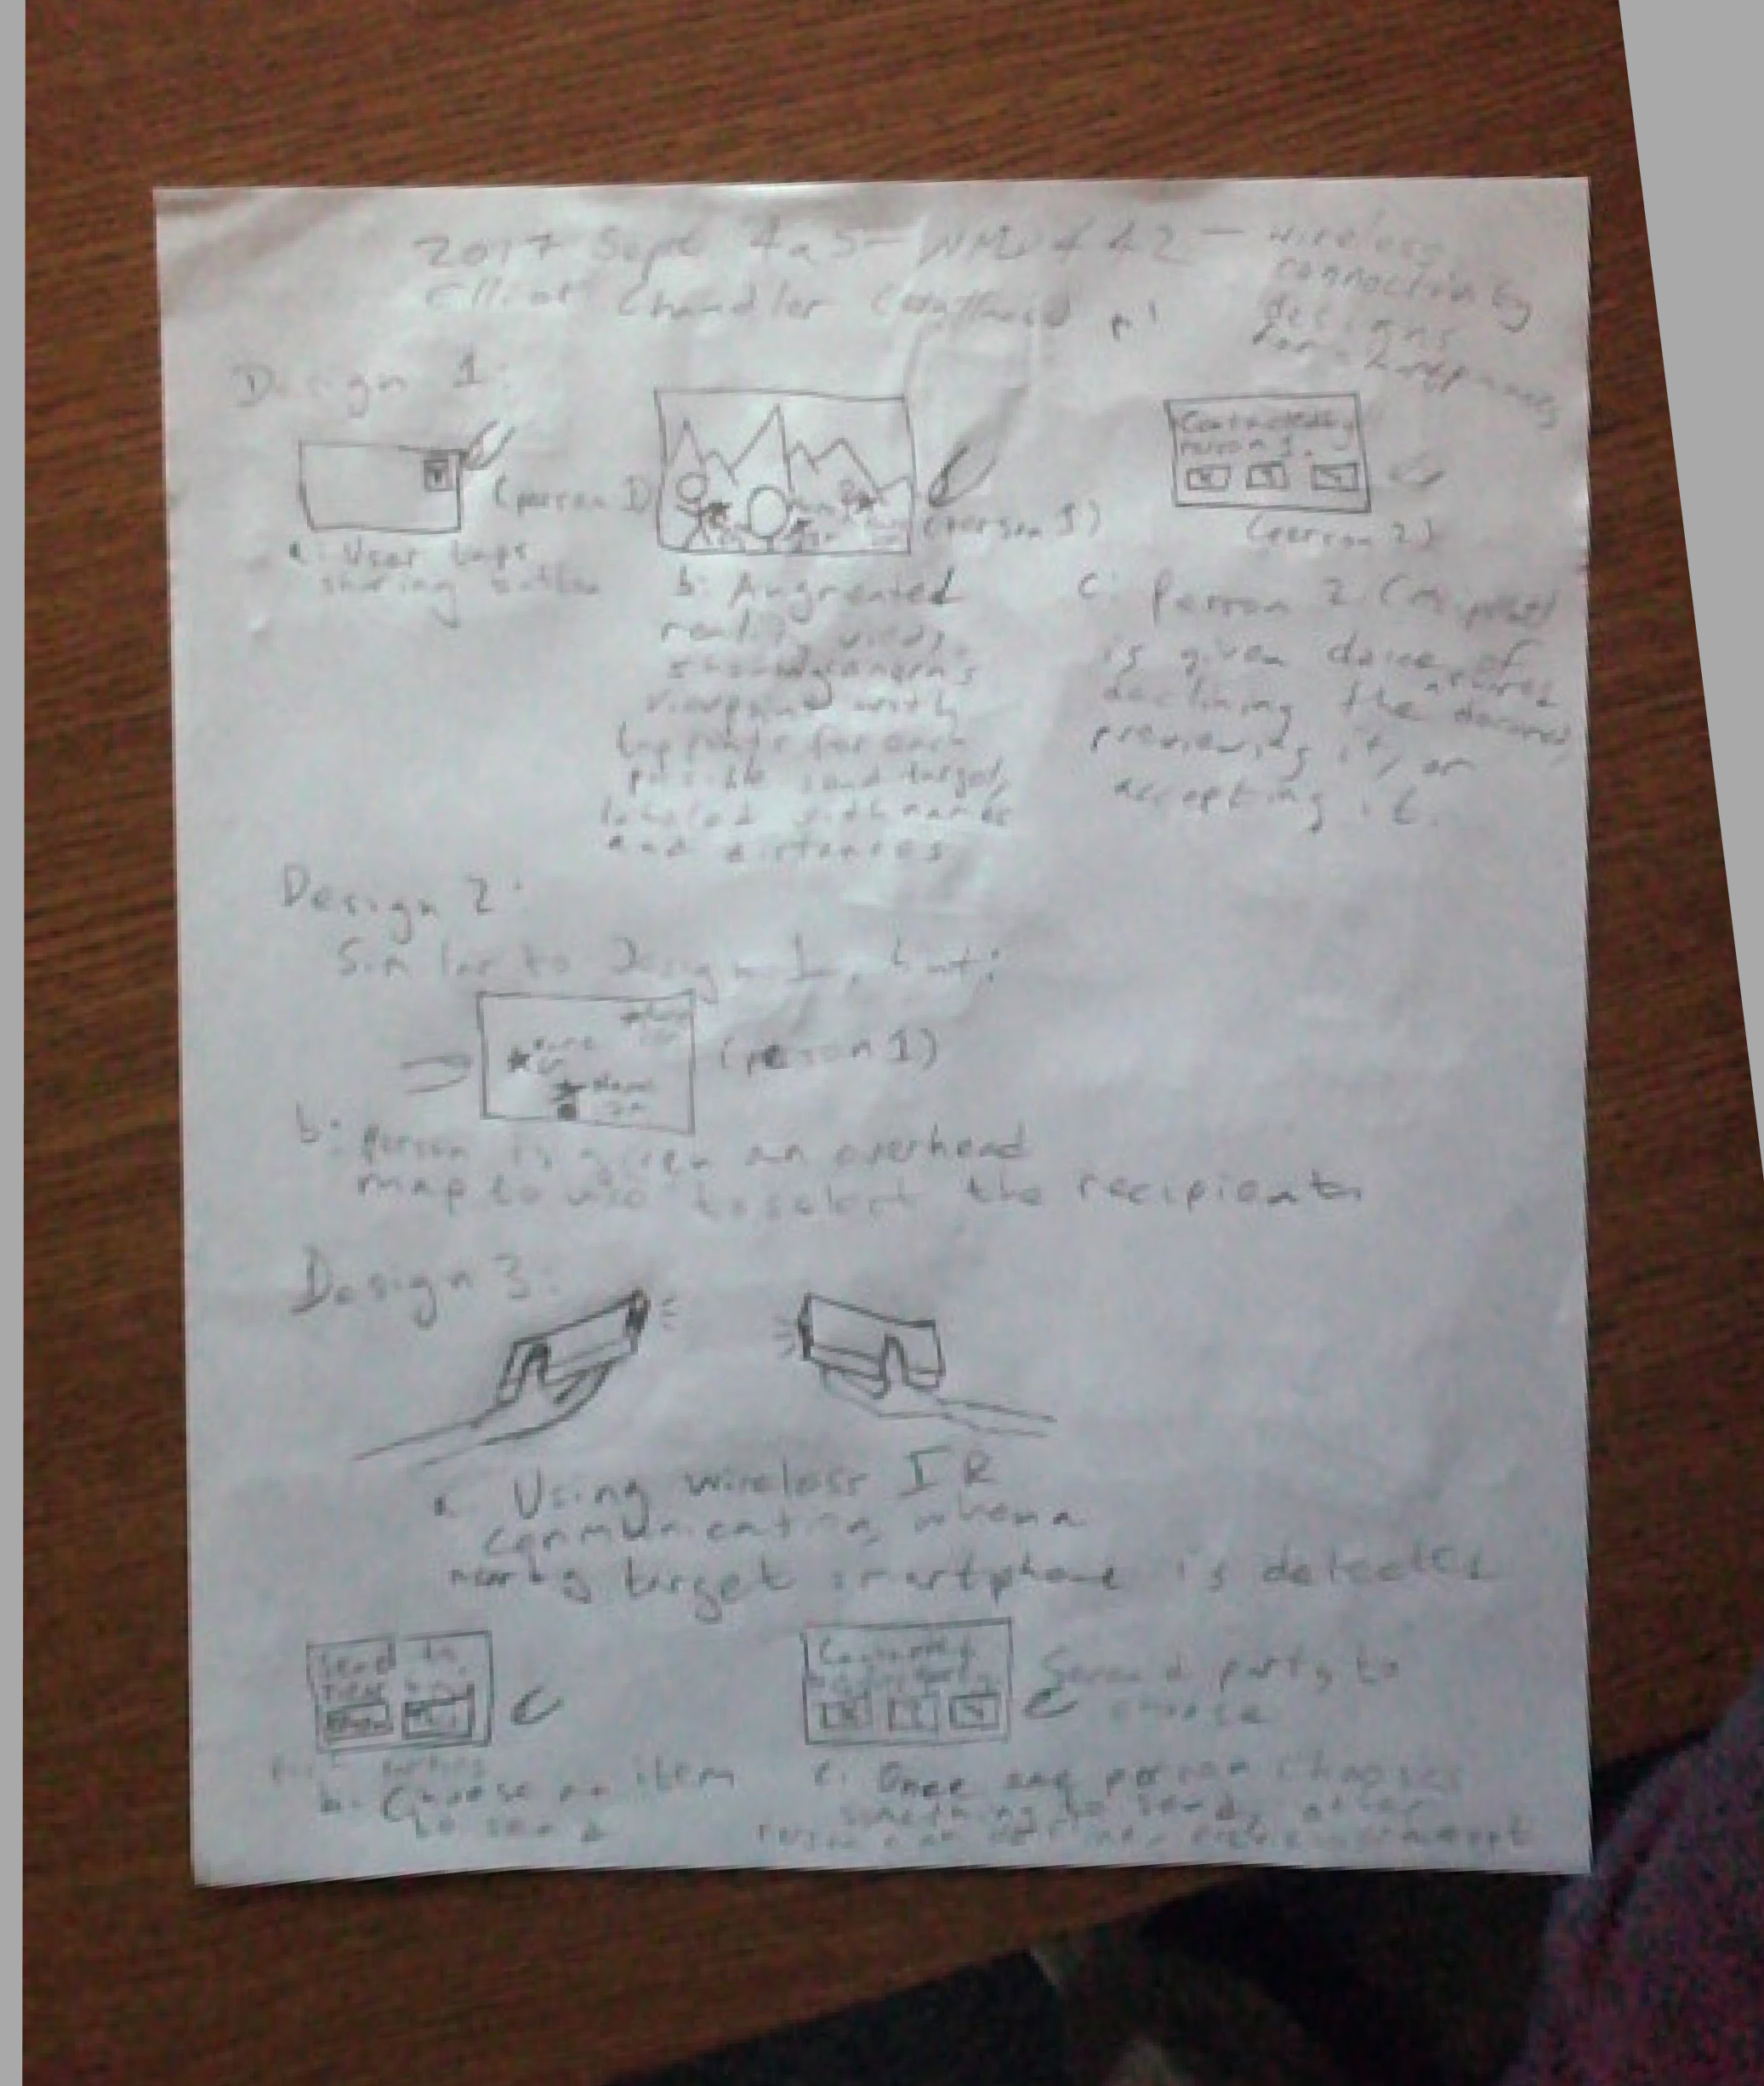 2017 Sept 4a5 - NMD 442 - wireless
connectivity
designs
for smartphones
Elliot Chandler p1
Design 1:
(person 1)
a. User taps
sharing button
(person 1)
b. Augmented
reality
showing camera's
viewpoint with
tap points for each
possible send target,
labeled with names
and distances
Contacted by
person 1.
(person 2)
c. Person 2
is given choice of
declining the
previewing it, or
accepting it.
Design 2:
Similar to Design 1, but:
Name
Name
Name
(person 1)
b. person is given an overhead
map to use to select the recipients
Design 3:
a. Using wireless IR
communicating when a
nearby target smartphone is detected
Send to
b. Choose an item
to send
Second party to
choose
c. Once one person chooses
something to send, other
person can decline, or accept